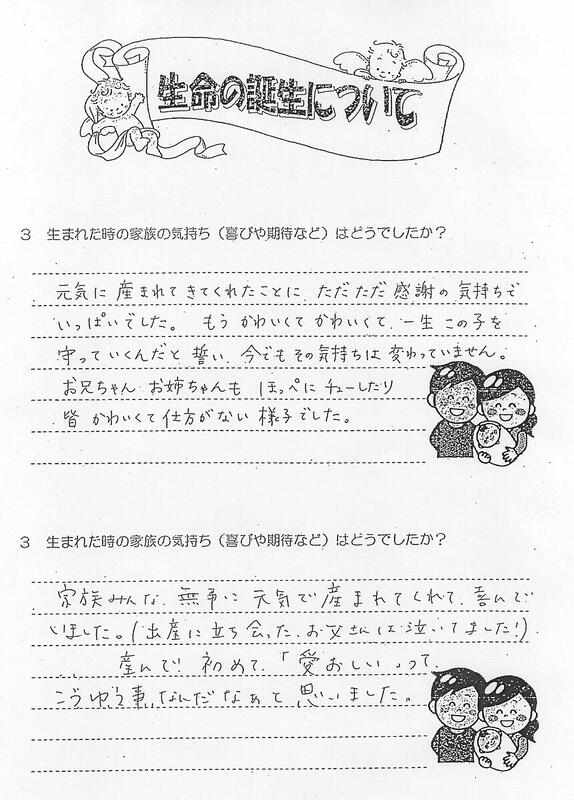 生命の誕生について
3 生まれた時の家族の気持ち（喜びや期待など）はどうでしたか？
元気に産まれてきてくれたことに ただただ 感謝の気持ちで
いっぱいでした。 もう かわいくて かわいくて、一生 この子を
守っていくんだと 誓い、今でもその気持ちは 変わっていません。
お兄ちゃん お姉ちゃんも ほっぺに チューしたり
皆 かわいくて仕方がない 様子でした。
3 生まれた時の家族の気持ち（喜びや期待など）はどうでしたか？
家族みんな、無事に 元気で産まれてくれて、喜んで
いました。(出産に立ち会った、お父さんは泣いてました!)
... 産んで! 初めて、「愛おしい」って、
こうゆう事、なんだなぁと 思いました。